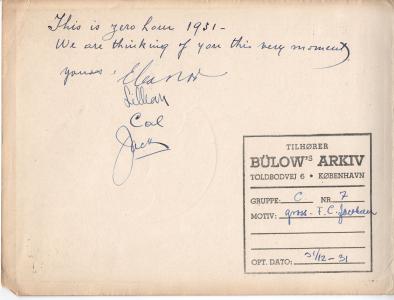 This is zero hour 1931 -
We are thinking of you this very moment
yours, Eleanor
Lillian
Cal
Jack
TILHØRER
BÜLOW's ARKIV
TOLDBODVEJ 6 • KØBENHAVN
GRUPPE: C NR 7
MOTIV: gross. F. C.
OPT. DATO: 31/12-31